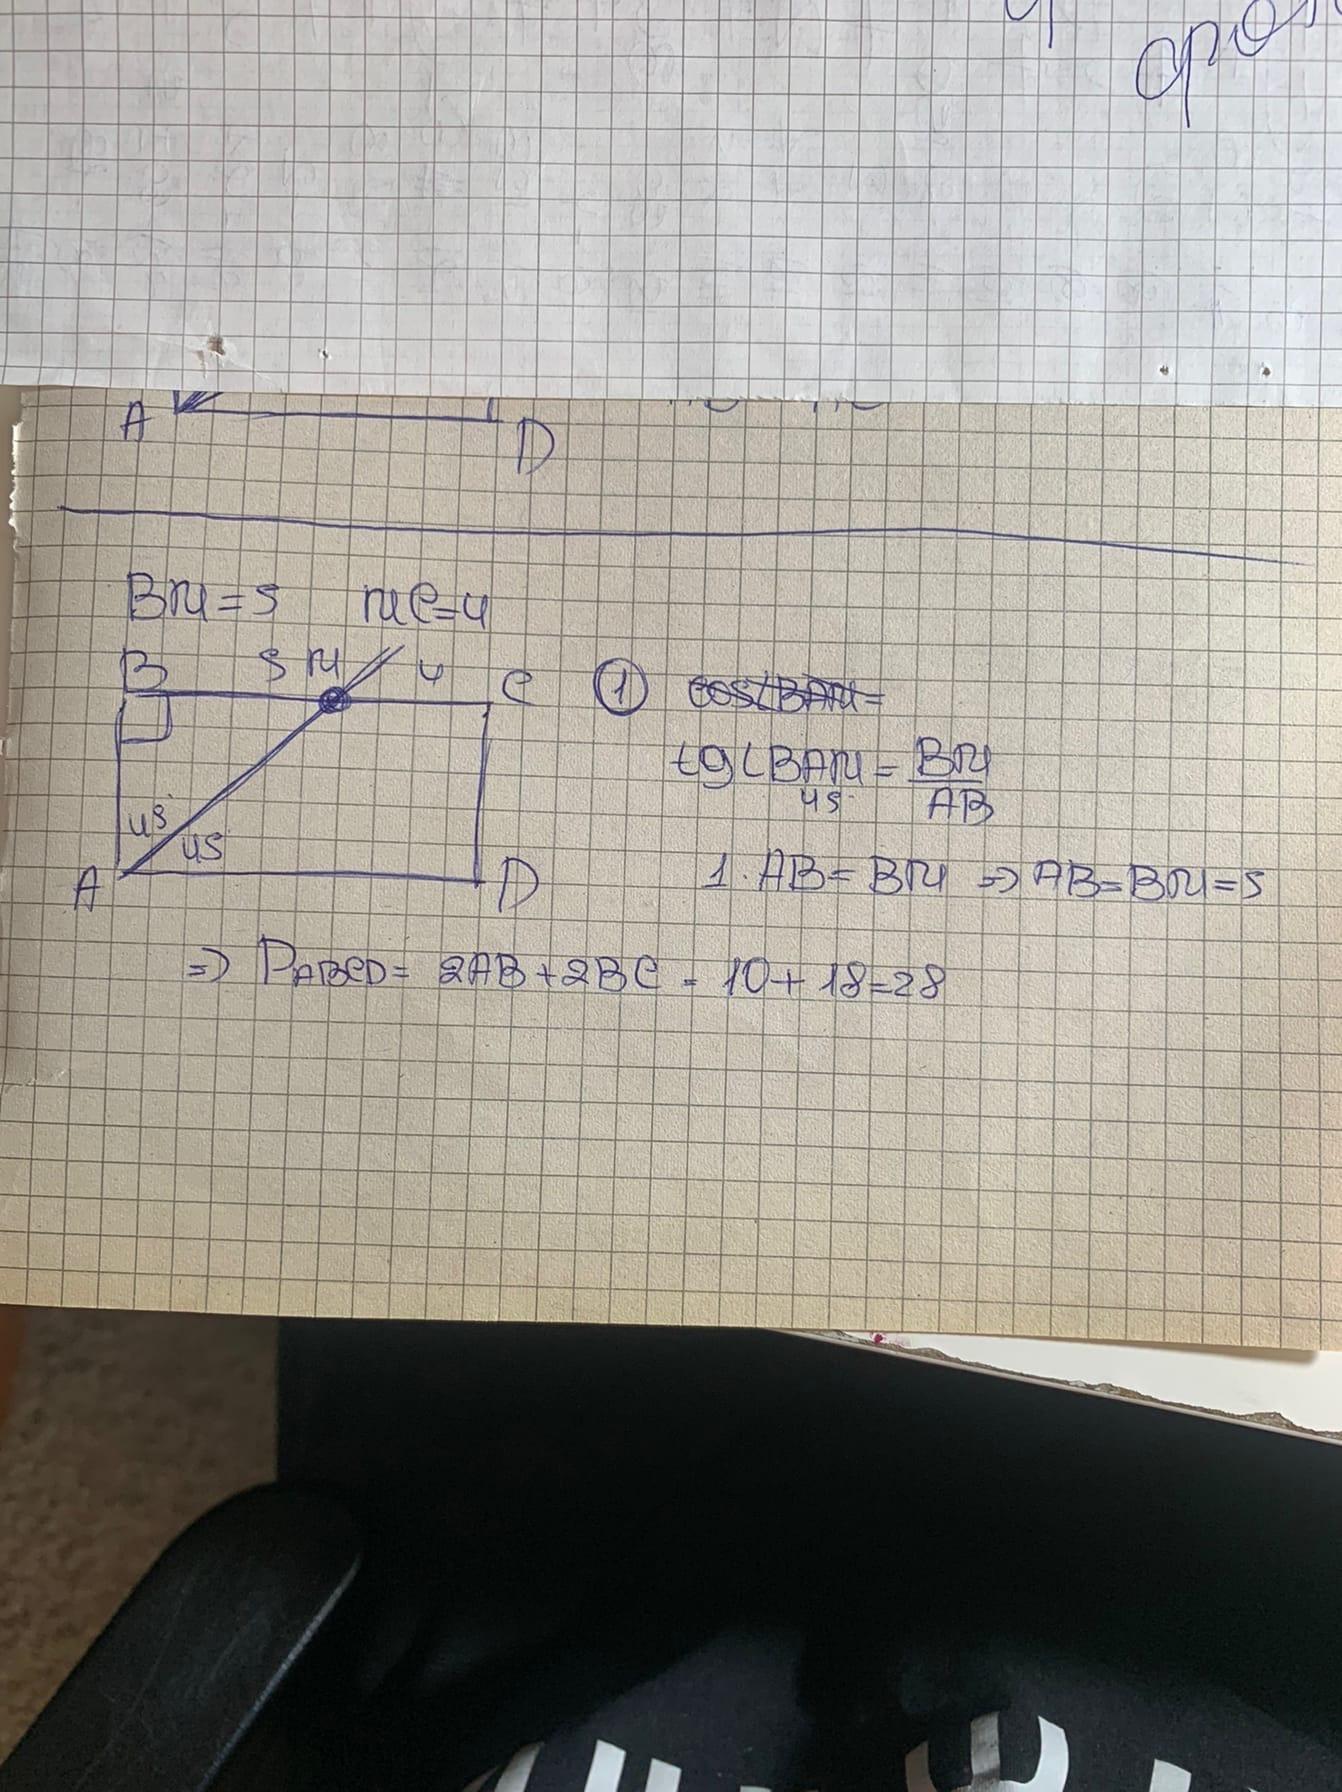 A
D
BM=5 MC=4
B 5 M 4 C
45 45
A D
① cos∠BAM=
tg∠BAM = BM/AB
45
1·AB=BM ⇒ AB=BM=5
⇒ PABCD= 2AB+2BC = 10+18=28